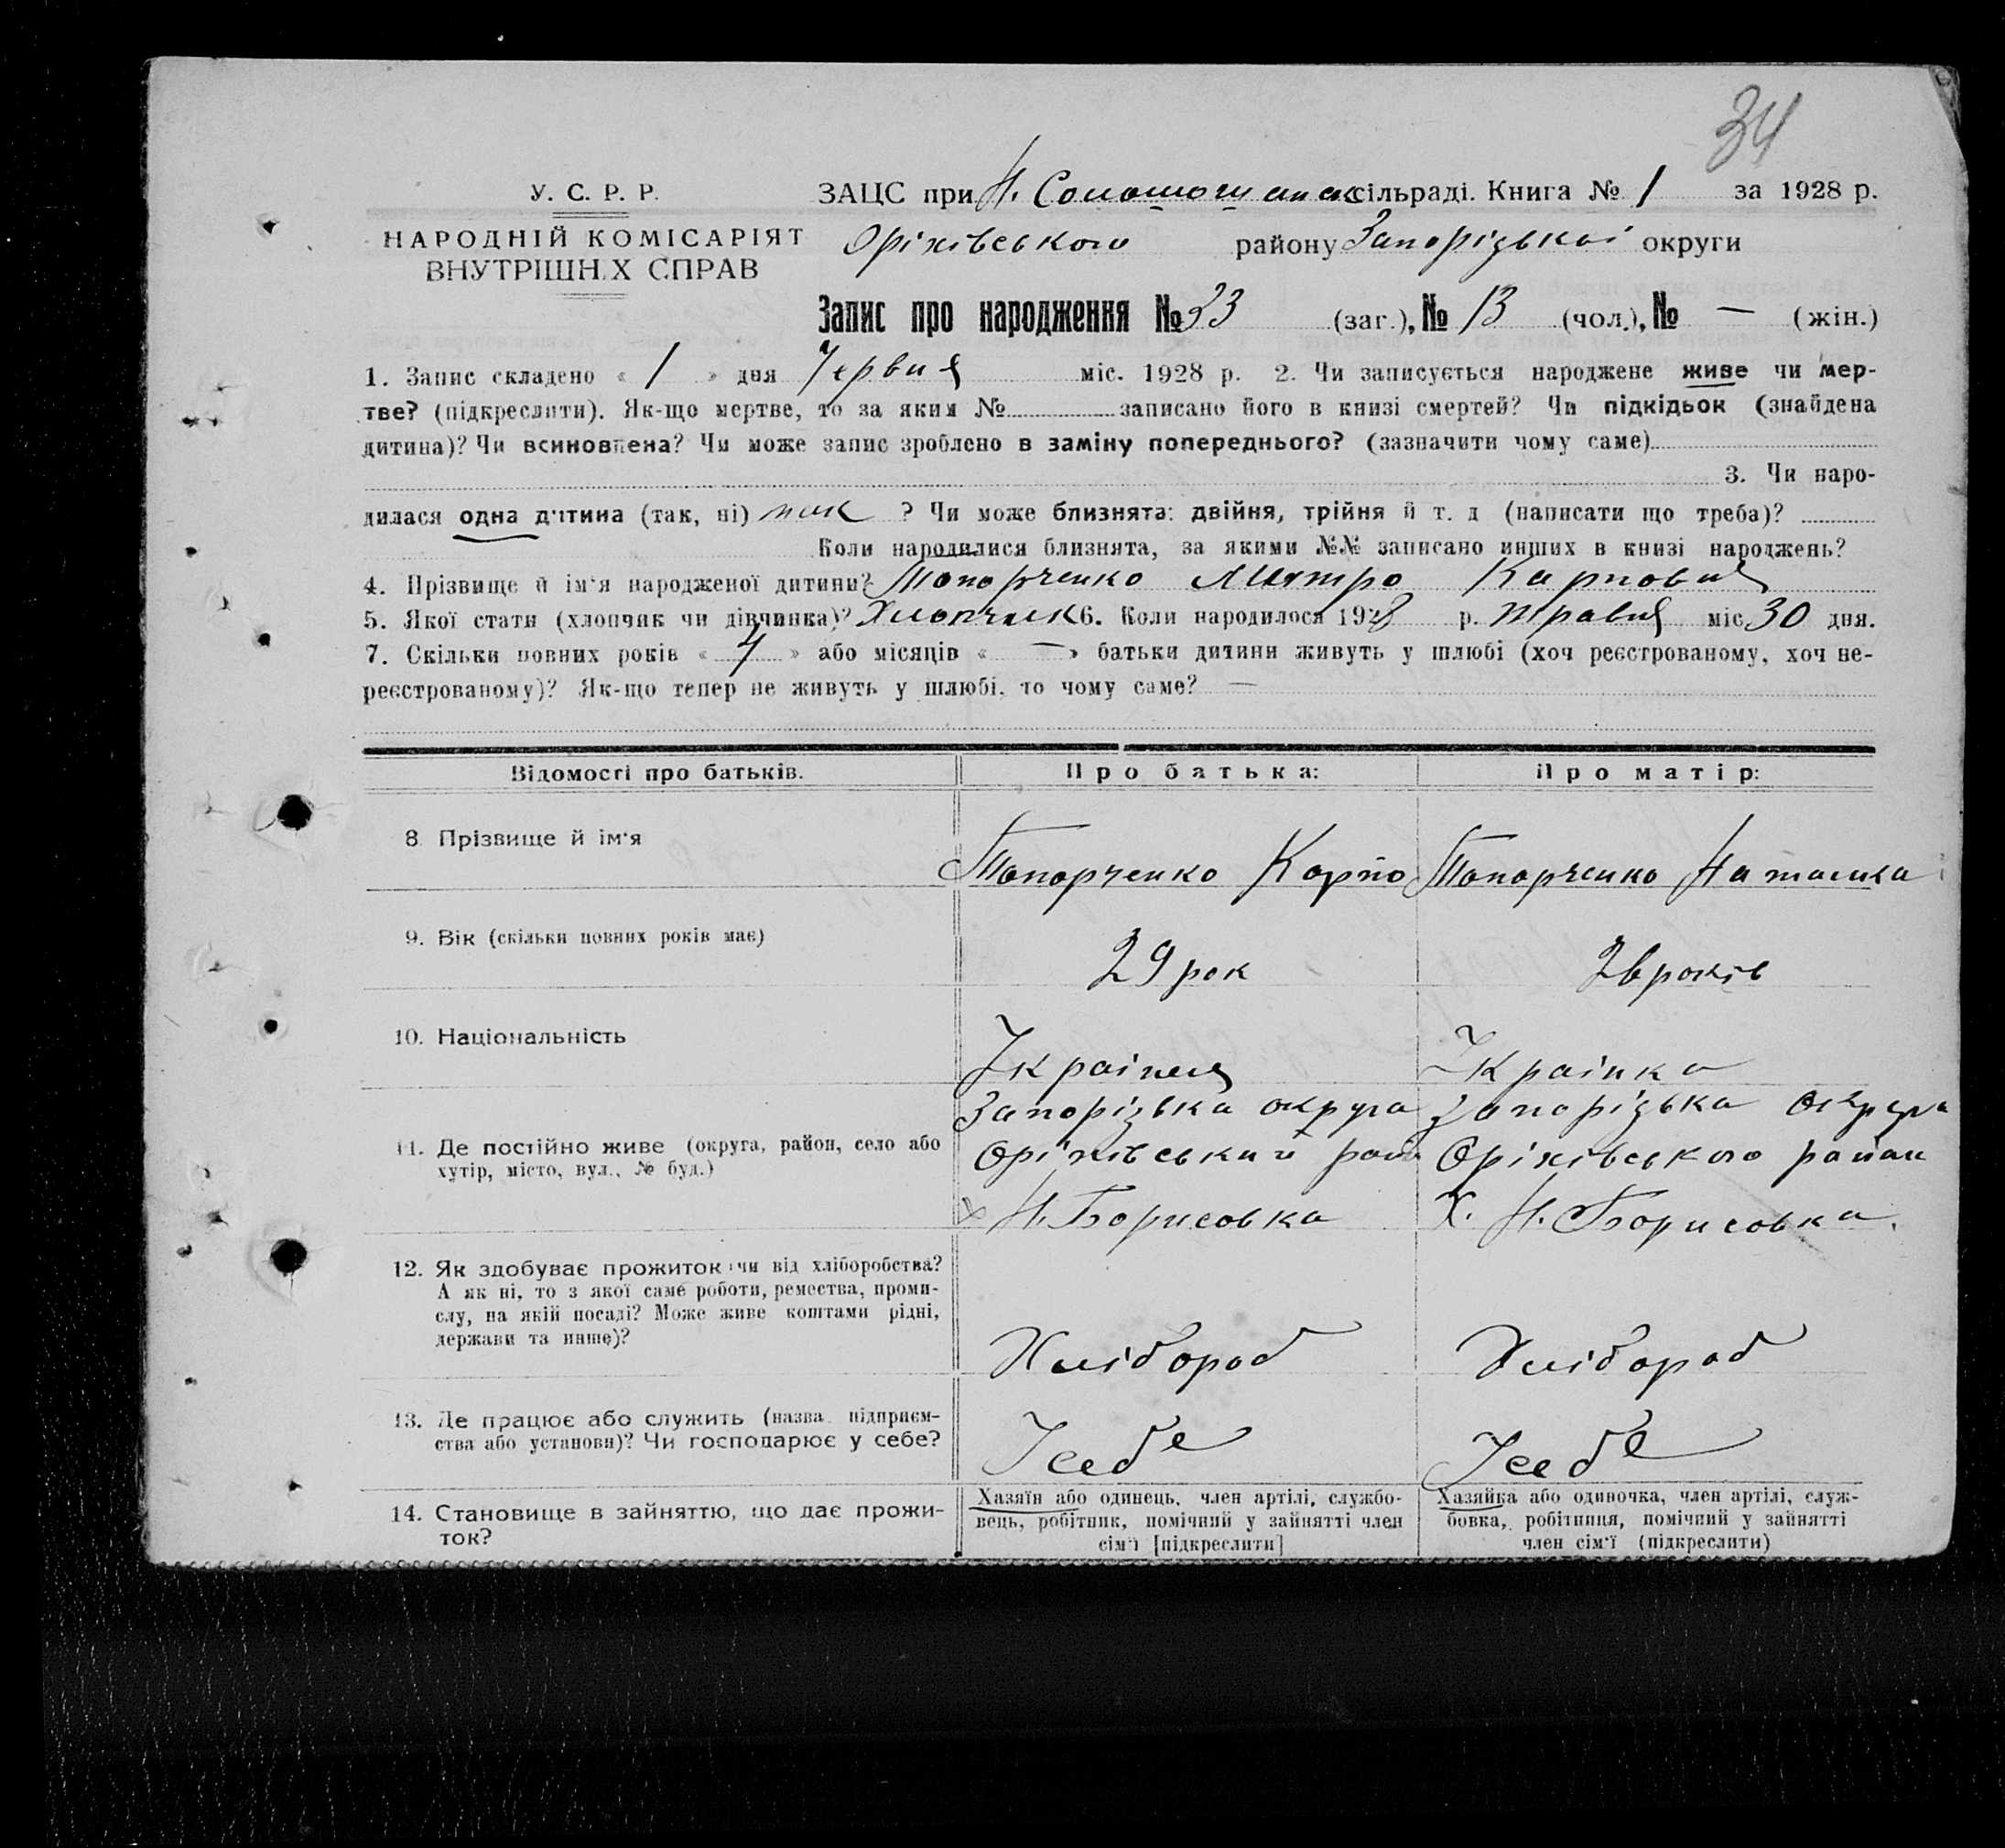 34
У. С. Р. Р.
НАРОДНІЙ КОМІСАРІЯТ
ВНУТРІШНІХ СПРАВ
ЗАЦС при Н. сільраді. Книга № 1 за 1928 р.
Оріхівського району Запорізької округи
Запис про народження № 33 (заг.), № 13 (чол.), № — (жін.)
1. Запис складено « 1 » дня Червня міс. 1928 р. 2. Чи записується народжене живе чи мер-
тве? (підкреслити). Як-що мертве, то за яким № записано його в книзі смертей? Чи підкідьок (знайдена
дитина)? Чи всиновлена? Чи може запис зроблено в заміну попереднього? (зазначити чому саме)
3. Чи наро-
дилася одна дитина (так, ні) так ? Чи може близнята: двійня, трійня й т. д (написати що треба)?
Коли народилися близнята, за якими №№ записано инших в книзі народжень?
4. Прізвище й ім'я народженої дитини? Топорченко Митро Карпович
5. Якої стати (хлопчик чи дівчинка)? Хлопчик 6. Коли народилося 1928 р. травня міс. 30 дня.
7. Скільки повних років « 7 » або місяців « — » батьки дитини живуть у шлюбі (хоч реєстрованому, хоч не-
реєстрованому)? Як-що тепер не живуть у шлюбі, то чому саме? —
Відомості про батьків. Про батька: Про матір:
8. Прізвище й ім'я Топорченко Карпо Топорченко Наталка
9. Вік (скільки повних років має) 29 рок 26 років
10. Національність Українец Українка
11. Де постійно живе (округа, район, село або
хутір, місто, вул., № буд.)
Запорізька округа Запорізька округа
Оріхівський район Оріхівського район
х Н. Борисовка Х. Н. Борисовка.
12. Як здобуває прожиток чи від хліборобства?
А як ні, то з якої саме роботи, ремества, проми-
слу, на якій посаді? Може живе коштами рідні,
держави та инше)?
Хлібороб Хлібороб
13. Де працює або служить (назва підприєм-
ства або установи)? Чи господарює у себе?
У себе У себе
14. Становище в зайняттю, що дає прожи-
ток?
Хазяїн або одинець, член артілі, службо-
вець, робітник, помічний у зайнятті член
сім'ї [підкреслити]
Хазяйка або одиночка, член артілі, служ-
бовка, робітниця, помічний у зайнятті
член сім'ї (підкреслити)